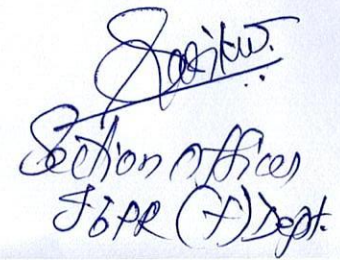 Section Officer
I&PR (F) Dept.